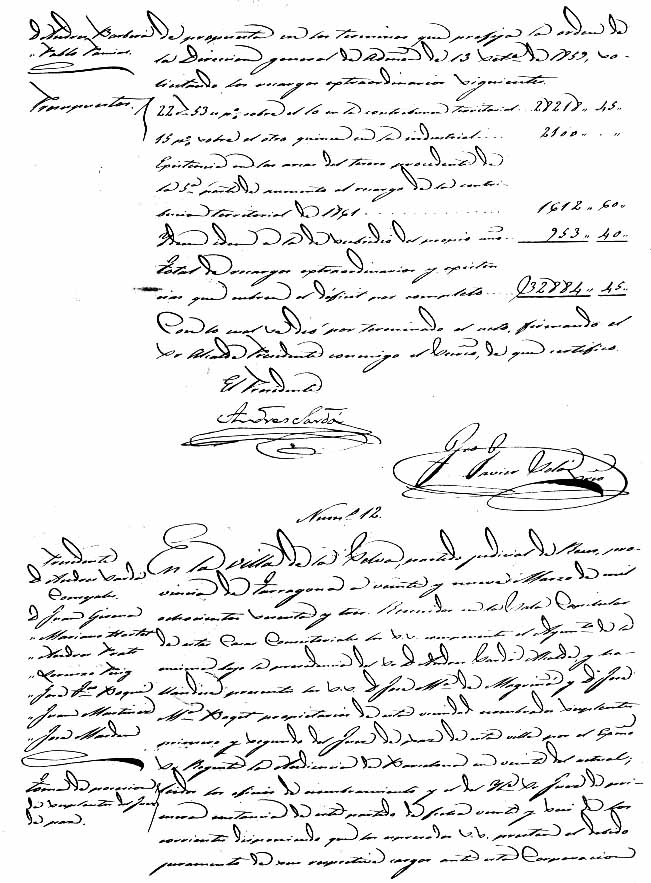 D. Andres Barbera
" Pablo
Presupuestos.
de propuesta en los terminos que prefija la orden de
la Direccion general de Admon de 13 de 1859, so-
licitando los recargos extraordinarios siguientes.
22 53 sobre el 10 en la contribucion territorial 28218 " 45 "
15 p% sobre el otro quince en la industrial 2100 " "
Existencia en las arcas del tesoro procedente de
la 5ª parte de aumento al recargo de la contri-
bucion territorial de 1861 1612 " 60 "
Idem idem a la de subsidio del propio año 953 " 40 "
Total de recargos extraordinarios y existen-
cias que cubren el déficit por completo 32884 " 45 "
Con lo cual se dió por terminado el acto, firmando el
Sr Alcalde Presidente conmigo el Srio, de que certifico.
El Presidente
Andres Sardá
Javier
Num.º 12.
Presidente
D. Andres Sardá
Concejales
D. Juan
" Mariano
" Andres
" Lorenzo Puig
" José
" Juan
" José
Toma de posesion
de suplentes del Juez
de paz.
En la villa de la Selva, partido judicial de Reus, pro-
vincia de Tarragona a veinte y nueve Marzo de mil
ochocientos sesenta y tres. Reunidos en la Sala Capitular
de estas Casas Consistoriales los SS. componentes el Ayunto de la
misma bajo la presidencia del Sr D. Andres Sardá Alcalde y ha-
llandose presentes los SS. D. José Mª de y D. José
Mª propietarios de este vecindad nombrados suplentes
primero y segundo del Juez de paz de esta villa por el Excmo
Sr Regente la Audiencia de Barcelona en veinte del actual,
los oficios de nombramiento y el del Sr Juez de pri-
mera instancia de este partido de fecha veinte y seis de los
corrientes disponiendo que los espresados SS. presten el debido
juramento de sus respectivos cargos ante esta Corporacion